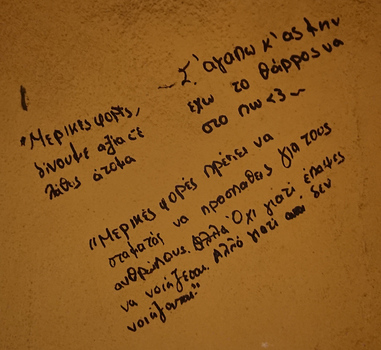 "Μερικες φορές,
δίνουμε αξία σε
λάθος άτομα
~Σ'αγαπω κ'ας μην
εχω το θάρρος να
στο πω <3~
"Μερικές φορές πρέπει να
σταματάς να προσπαθείς για τους
ανθρώπους. Αλλά Όχι γιατί έπαψες
να νοιάζεσαι. Αλλά γιατί αυτοί δεν
νοιάζονται"